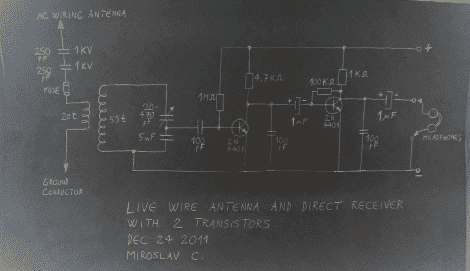 AC WIRING ANTENNA
250 PF
1KV
250 PF
1KV
FUSE
20t
55t
470 PF
5nF
GROUND
CONDUCTOR
1MΩ
100 PF
4,7KΩ
2N
4401
100 PF
+ -
1µF
100KΩ
1KΩ
2N
4401
+ -
1µF
100 PF
HEADPHONES
+
LIVE WIRE ANTENNA AND DIRECT RECEIVER
WITH 2 TRANSISTORS
DEC 24 2011
MIROSLAV C.